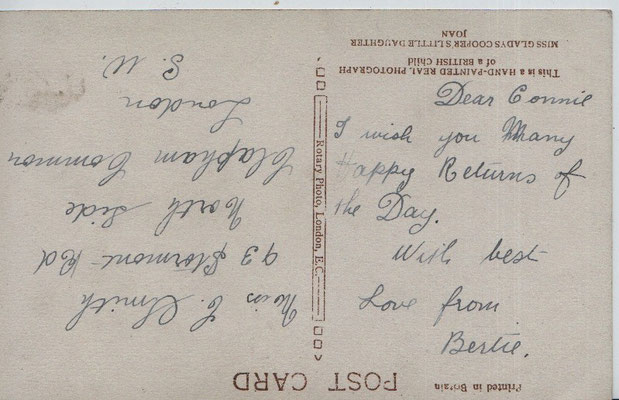 MISS GLADYS COOPER'S LITTLE DAUGHTER
JOAN
This is a HAND-PAINTED REAL PHOTOGRAPH
of a BRITISH Child
Dear Connie
I wish you Many
Happy Returns of
the Day.
With best
Love from
Bertie.
Rotary Photo, London, E.C.
POST CARD
Printed in Britain
Miss C. Smith
93 Stormont Rd
North Side
Clapham Common
London
S. W.